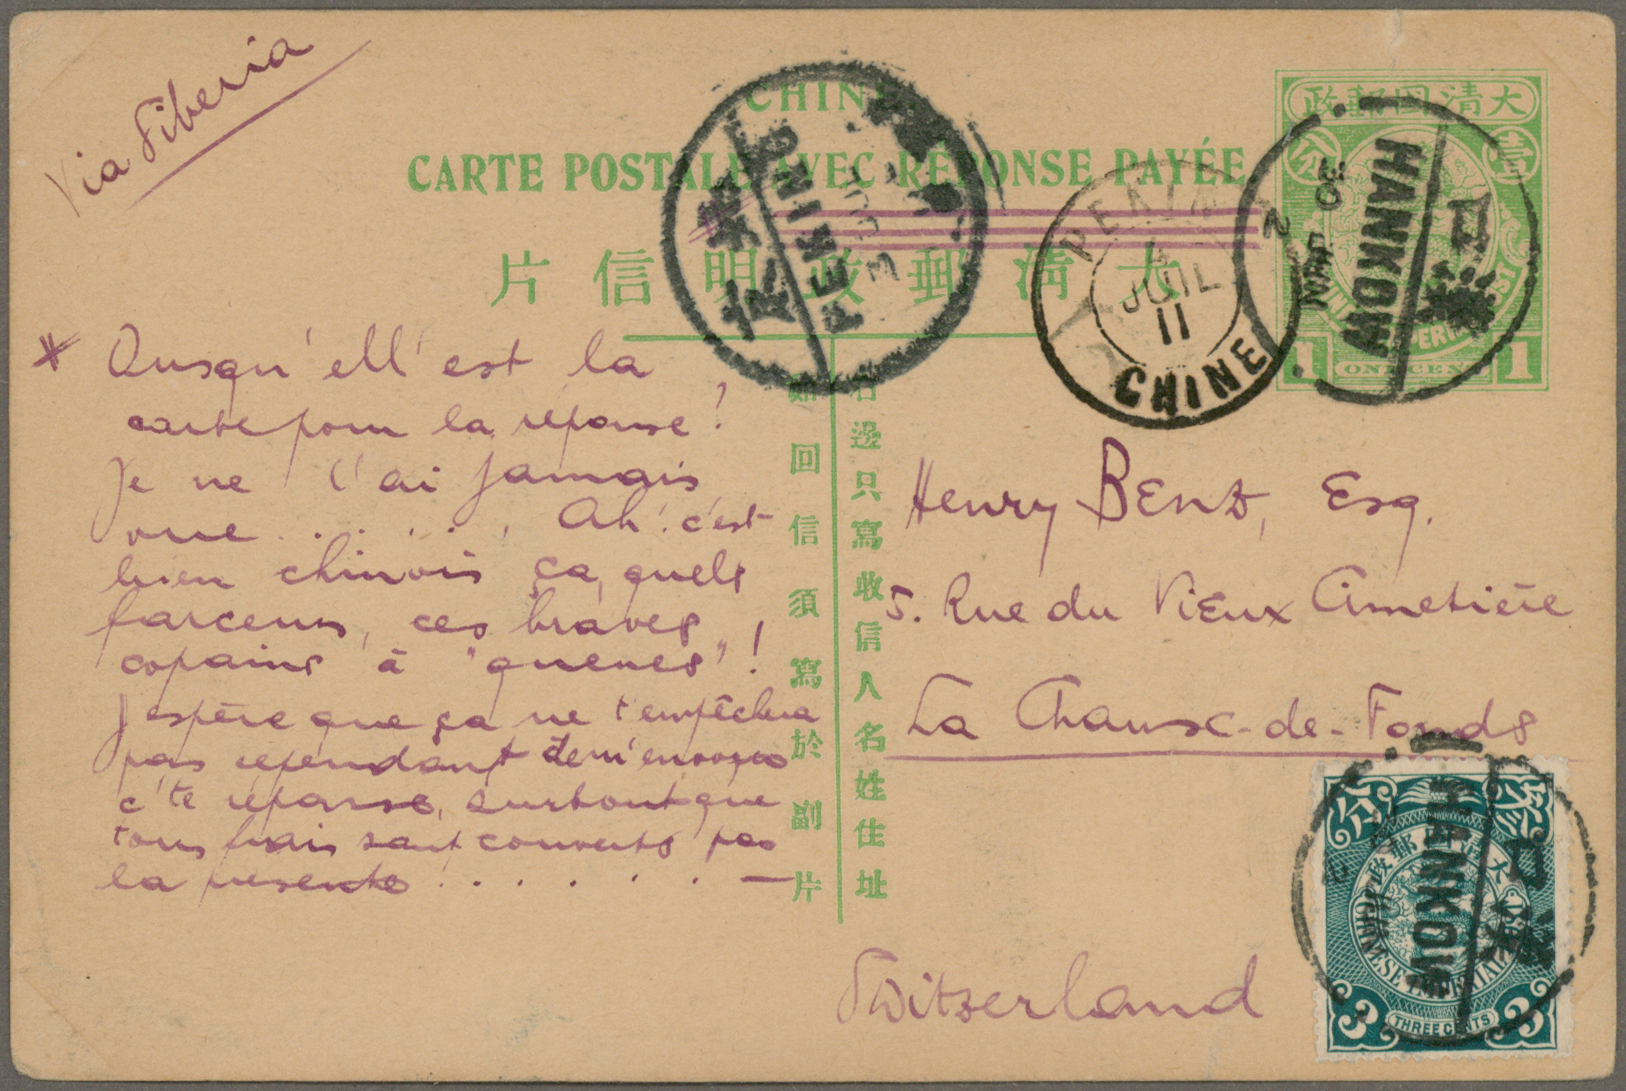 Via Siberia
CHINE
CARTE POSTALE AVEC RÉPONSE PAYÉE
片信明政郵清大
政郵國清大
分 壹
CHINESE IMPERIAL POST
1 ONE CENT 1
HANKOW
漢口
30 MAR
北京
PEKING
PEKIN
4
JUIL
11
CHINE
右邊只寫收信人名姓住址
如回信須寫於副片
* Ousqu'ell' est la
carte pour la réponse?
Je ne l'ai jamais
vue ..... Ah! c'est
bien chinois ça, quels
farceurs, ces braves
copains à "queues"!
J'espère que ça ne t'empêchera
pas cependant de m'envoyer
c'te réponse, surtout que
tous frais sont couverts par
la présente ...... —
Henry BENZ, Esq.
5. Rue du Vieux Cimetière
La Chaux-de-Fonds
Switzerland
分
政郵清大
CHINESE IMPERIAL POST
3 THREE CENTS 3
HANKOW
漢口